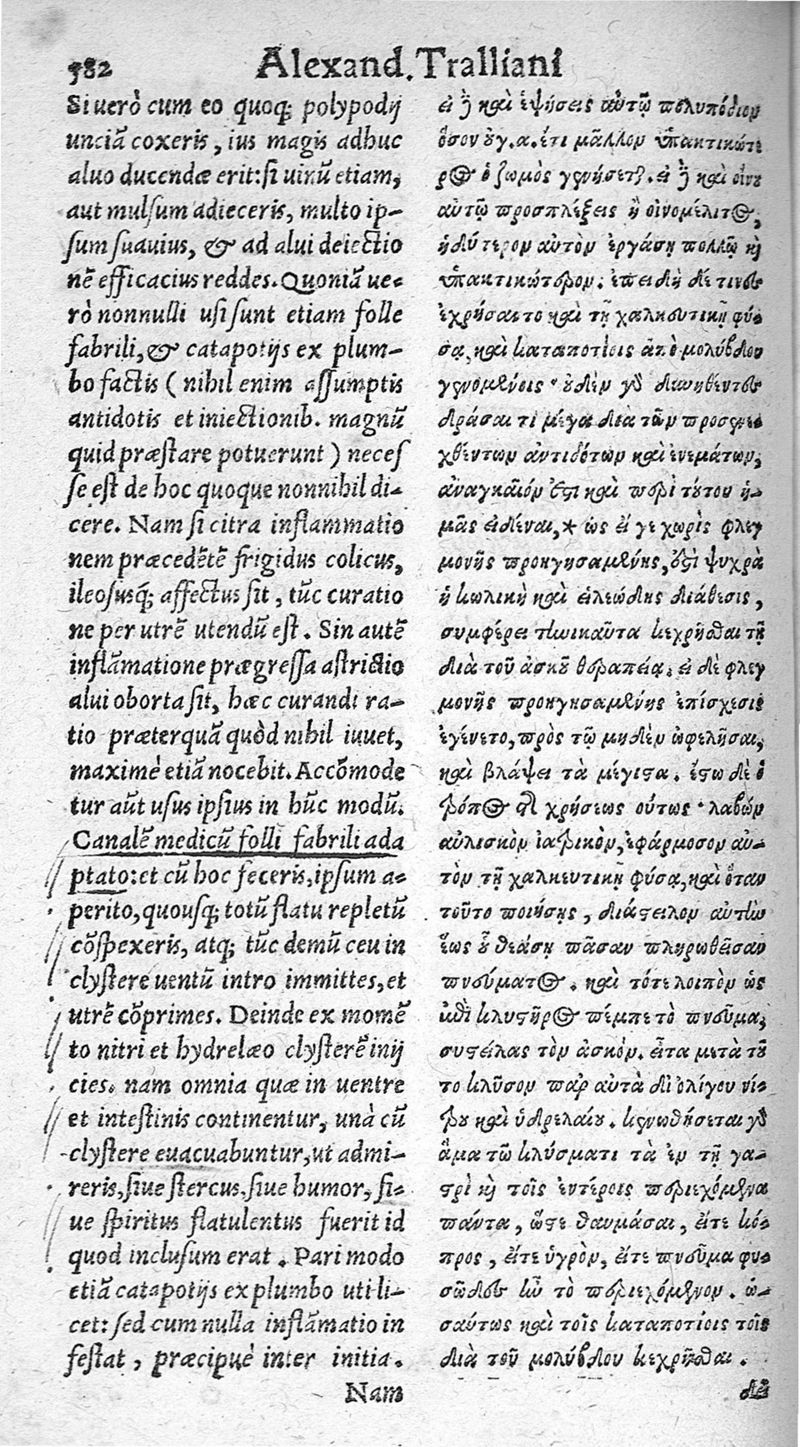 582 Alexand. Tralliani
Si uerò cum eo quoq; polypodij
unciā coxeris, ius magis adhuc
aluo ducendæ erit: si uinū etiam,
aut mulsum adieceris, multo ip-
sum suauius, & ad alui deiectio
nē efficacius reddes. Quoniā ue-
rò nonnulli usi sunt etiam folle
fabrili, & catapotijs ex plum-
bo factis ( nihil enim assumptis
antidotis et iniectionib. magnū
quid præstare potuerunt ) neces
se est de hoc quoque nonnihil di-
cere. Nam si citra inflammatio
nem præcedētē frigidus colicus,
ileosusq; affectus sit, tūc curatio
ne per utrē utendū est. Sin autē
inflāmatione prægressa astrictio
alui oborta sit, hæc curandi ra-
tio præterquā quòd nihil iuuet,
maximè etiā nocebit. Accōmode
tur aūt usus ipsius in hūc modū.
Canalē medicū folli fabrili ada
ptato: et cū hoc feceris, ipsum a-
perito, quousq; totū flatu repletū
cōspexeris, atq; tūc demū ceu in
clystere uentū intro immittes, et
utrē cōprimes. Deinde ex momē
to nitri et hydrelæo clysterē inij
cies. nam omnia quæ in uentre
et intestinis continentur, unà cū
clystere euacuabuntur, ut admi-
reris, siue stercus, siue humor, si-
ue spiritus flatulentus fuerit id
quod inclusum erat. Pari modo
etiā catapotijs ex plumbo uti li-
cet: sed cum nulla inflāmatio in
festat, præcipuè inter initia.
Nam
εἰ ἢ καὶ ἑψήσεις αὐτῷ πολυπόδιον
ὅσον ὀγ. α. ἔτι μᾶλλον ὑπακτικώτε
ρος ὁ ζωμὸς γενήσεται. εἰ ἢ καὶ οἴνου
αὐτῷ προσπλέξεις ἢ οἰνομέλιτος,
ἡδύτερον αὐτὸν ἐργάσῃ πολλῷ καὶ
ὑπακτικώτερον. ἐπειδὴ δέ τινες
ἐχρήσαντο καὶ τῇ χαλκευτικῇ φύ-
σᾳ, καὶ καταποτίοις ἀπὸ μολύβδου
γενομένοις· οὐδὲν γὰρ δυνηθέντες
δρᾶσαί τι μέγα διὰ τῶν προσενε
χθέντων ἀντιδότων καὶ ἐνεμάτων,
ἀναγκαῖόν ἐστι καὶ περὶ τούτου ἡ-
μᾶς εἰδέναι, * ὡς εἴ γε χωρὶς φλεγ
μονῆς προηγησαμένης, ἐστὶ ψυχρὰ
ἡ κωλικὴ καὶ εἰλεώδης διάθεσις,
συμφέρει τηνικαῦτα κεχρῆσθαι τῇ
διὰ τοῦ ἀσκοῦ θεραπείᾳ. εἰ δὲ φλεγ
μονῆς προηγησαμένης ἐπίσχεσις
ἐγένετο, πρὸς τῷ μηδὲν ὠφελῆσαι,
καὶ βλάψει τὰ μέγιστα. ἔστω δὲ ὁ
τρόπος τῆς χρήσεως οὕτως· λαβὼν
αὐλίσκον ἰατρικὸν, ἐφάρμοσον αὐ-
τὸν τῇ χαλκευτικῇ φύσᾳ, καὶ ὅταν
τοῦτο ποιήσῃς, διάστειλον αὐτὴν
ἕως οὗ θεάσῃ πᾶσαν πληρωθεῖσαν
πνεύματος. καὶ τότε λοιπὸν ὡς
ἐπὶ κλυστῆρος πέμπε τὸ πνεῦμα,
συστείλας τὸν ἀσκόν. εἶτα μετὰ τοῦ
το κλῦσον παρ αὐτὰ δι ὀλίγου νί-
τρου καὶ ὑδρελαίου. κενωθήσεται γὰρ
ἅμα τῷ κλύσματι τὰ ἐν τῇ γα-
στρὶ καὶ τοῖς ἐντέροις περιεχόμενα
πάντα, ὥστε θαυμάσαι, εἴτε κό-
προς, εἴτε ὑγρὸν, εἴτε πνεῦμα φυ-
σῶδες ἦν τὸ περιεχόμενον. ὡ-
σαύτως καὶ τοῖς καταποτίοις τοῖς
διὰ τοῦ μολύβδου κεχρῆσθαι.
δεῖ